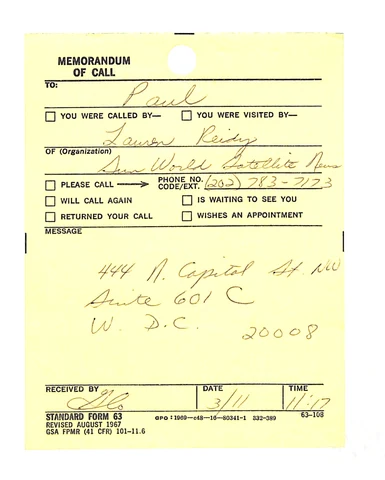 MEMORANDUM
OF CALL
TO:
Paul
YOU WERE CALLED BY— YOU WERE VISITED BY—
Lauren Reidy
OF (Organization)
Sun World Satellite News
PLEASE CALL PHONE NO. CODE/EXT. (202) 783-7173
WILL CALL AGAIN IS WAITING TO SEE YOU
RETURNED YOUR CALL WISHES AN APPOINTMENT
MESSAGE
444 N. Capitol St. NW
Suite 601 C
W. D.C. 20008
RECEIVED BY DATE TIME
3/11 11:17
STANDARD FORM 63 GPO : 1969—c48—16—80341-1 332-389 63-108
REVISED AUGUST 1967
GSA FPMR (41 CFR) 101-11.6